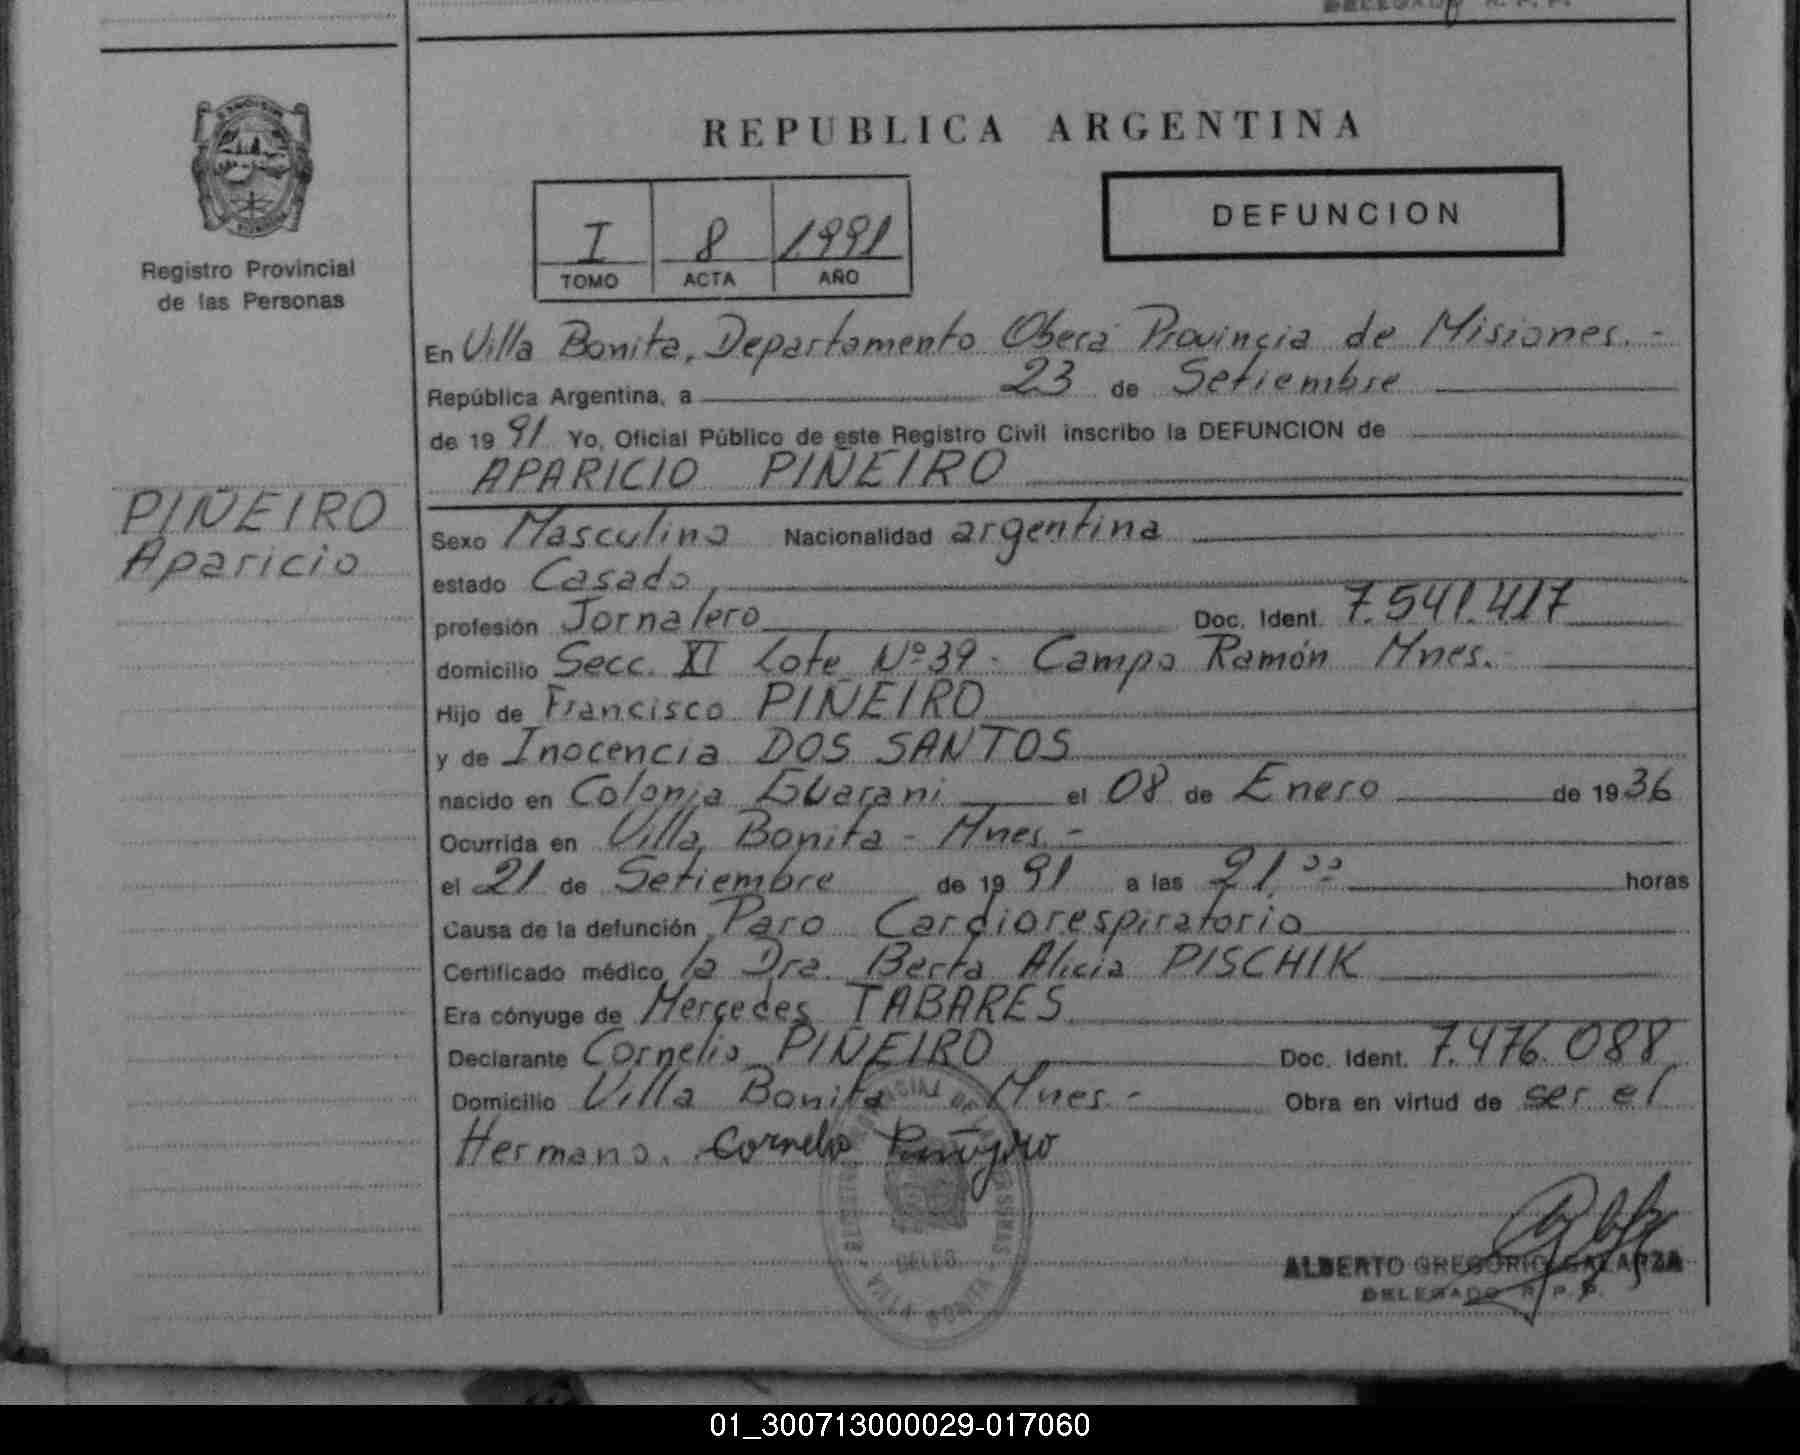 DELEGADO R. P. P.
REPUBLICA ARGENTINA
I 8 1991
TOMO ACTA AÑO
DEFUNCION
Registro Provincial
de las Personas
En Villa Bonita, Departamento Oberá Provincia de Misiones.-
República Argentina, a 23 de Setiembre
de 1991 Yo, Oficial Público de este Registro Civil inscribo la DEFUNCION de
APARICIO PIÑEIRO
PIÑEIRO
Aparicio
Sexo Masculino Nacionalidad argentina
estado Casado
profesión Jornalero Doc. Ident. 7.541.417
domicilio Secc. XI Lote Nº 39- Campo Ramón Mnes.-
Hijo de Francisco PIÑEIRO
y de Inocencia DOS SANTOS
nacido en Colonia Guarani el 08 de Enero de 1936
Ocurrida en Villa Bonita - Mnes.-
el 21 de Setiembre de 1991 a las 21,00 horas
Causa de la defunción Paro Cardiorespiratorio
Certificado médico la Dra. Berta Alicia PISCHIK
Era cónyuge de Mercedes TABARES
Declarante Cornelio PIÑEIRO Doc. Ident. 7.476.088
Domicilio Villa Bonita Mnes.- Obra en virtud de ser el
Hermano. Cornelio Piñeyro
ALBERTO GREGORIO GALARZA
DELEGADO R. P. P.
VILLA BONITA
01_300713000029-017060